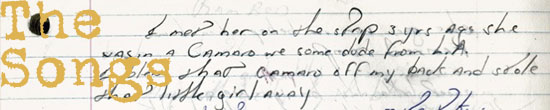 The
Songs
I met her on the strip 3 yrs ago she
was in a Camaro w some dude from L.A.
I blew that camaro off my back and stole
that little girl away